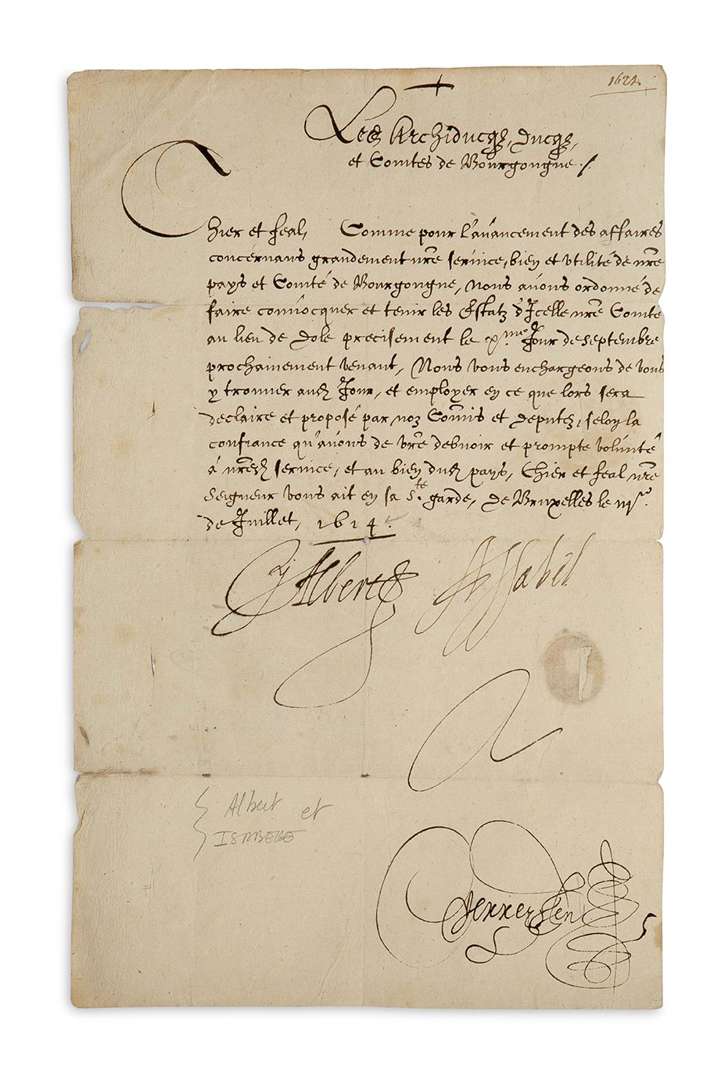 1624
Les Archiducqz, Ducqz,
et Comtes de Bourgongne ./.
Chier et feal, Comme pour l'auancement des affaires
concernans grandement nre seruice, bien et vtilité de nre
pays et Comté de Bourgongne, Nous auons ordonné de
faire conuocquer et tenir les Estatz d'Icelle nre Comté
au lieu de Dole precisement le xme. Jour de Septembre
prochainement venant, Nous vous enchargeons de vous
y trouuer aud. Jour, et employer en ce que lors sera
declairé et proposé par noz Commis et deputez, selon la
confiance qu'auons de vre debuoir et prompte volunté
à nred. seruice, et au bien dud. pays, Chier et feal, nre
Seigneur vous ait en sa Ste garde, De Bruxelles le
de Juillet, 1614
Albert Isabel
Albert et
ISABELLE